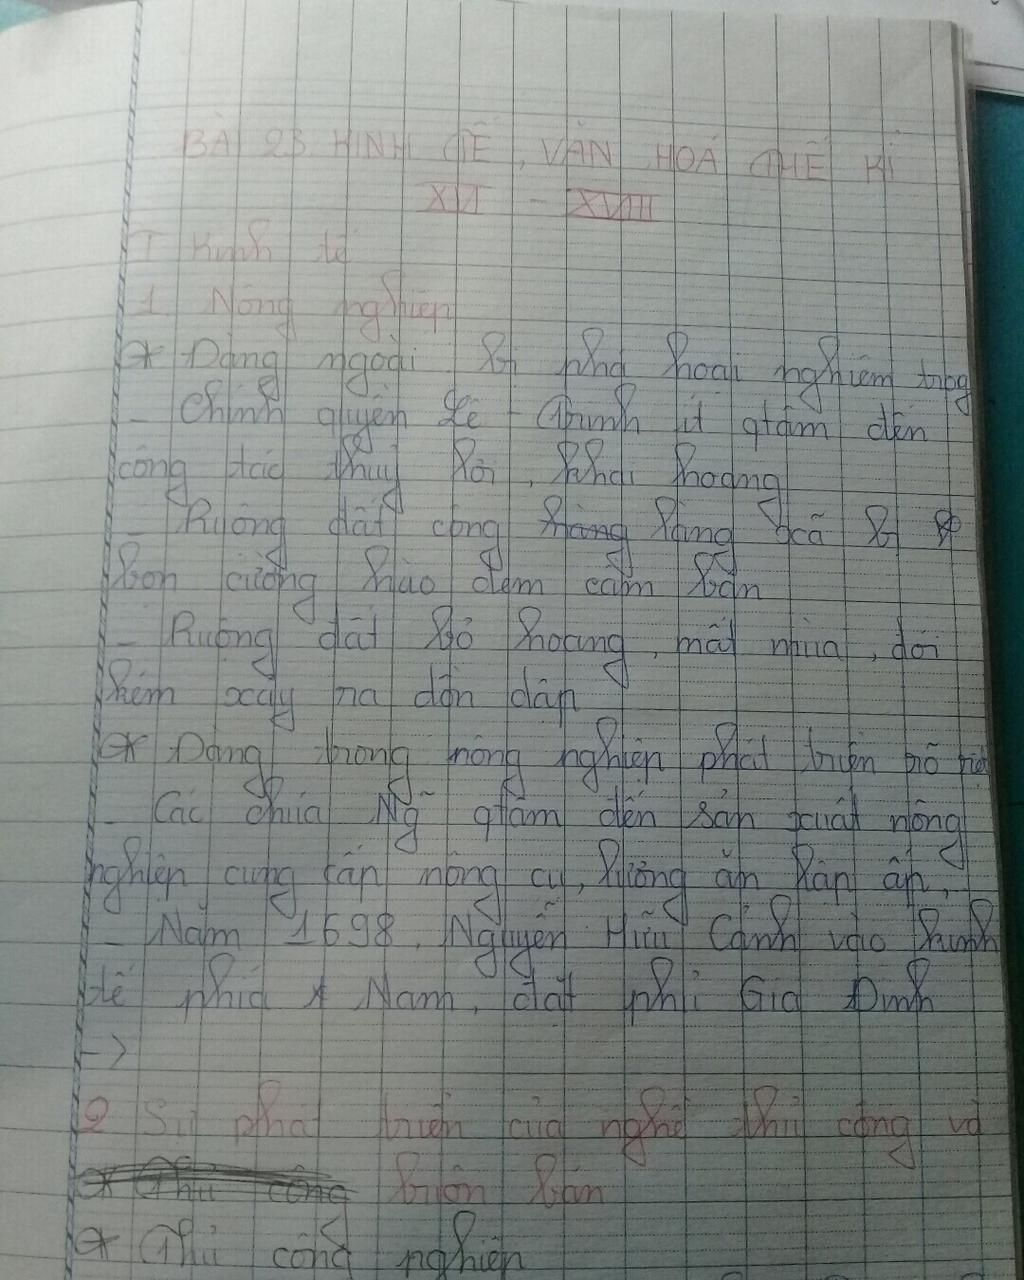 BÀI 23 KINH TẾ, VĂN HOÁ THẾ KỈ
XVI - XVIII
I Kinh tế
1. Nông nghiệp
* Đàng ngoài bị phá hoại nghiêm trọng
- Chính quyền Lê - Trịnh ít qtâm đến
công tác thuỷ lợi, khai hoang
- Ruộng đất công làng xã bị
bọn cường hào đem cầm bán
- Ruộng đất bỏ hoang, mất mùa, đói
kém xảy ra dồn dập
* Đàng trong nông nghiệp phát triển rõ rệt
- Các chúa Ng̃ qtâm đến sản xuất nông
nghiệp cung cấp nông cụ, lương ăn lập ấp,
- Năm 1698, Nguyễn Hữu Cảnh vào kinh
tế phía Nam, đặt phủ Gia Định
->
2 Sự phát triển của nghề thủ công và
buôn bán
* Thủ công nghiệp